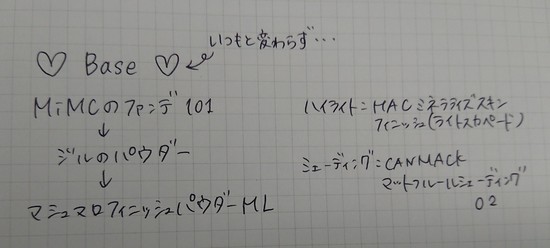 いつもと変わらず…
♡ Base ♡
MiMCのファンデ101
↓
ジルのパウダー
↓
マシュマロフィニッシュパウダーML
ハイライト=MACミネラライズスキン
フィニッシュ(ライトスカペード)
シェーディング=CANMACK
マットフルールシェーディング
02